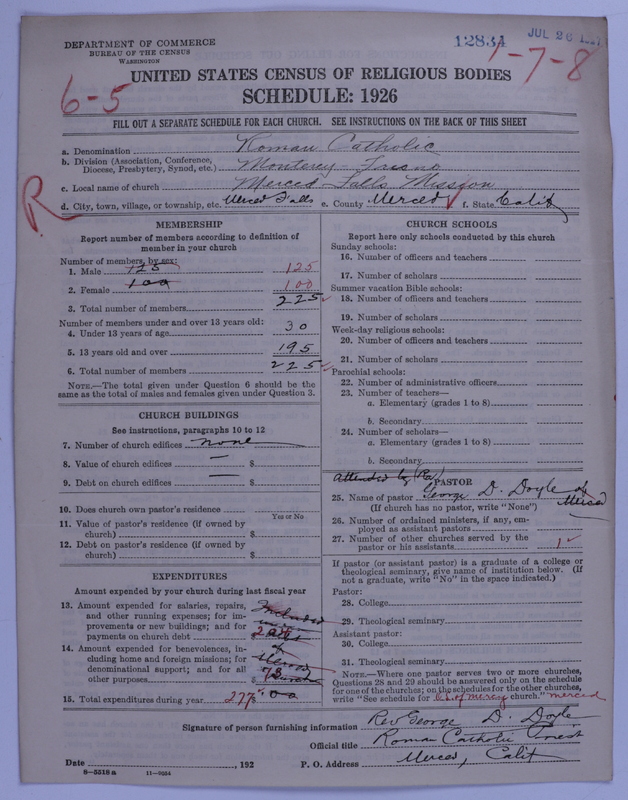 DEPARTMENT OF COMMERCE
BUREAU OF THE CENSUS
WASHINGTON
12834
JUL 26
1-7-8
6-5
UNITED STATES CENSUS OF RELIGIOUS BODIES
SCHEDULE: 1926
FILL OUT A SEPARATE SCHEDULE FOR EACH CHURCH. SEE INSTRUCTIONS ON THE BACK OF THIS SHEET
a. Denomination Roman Catholic
b. Division (Association, Conference, Diocese, Presbytery, Synod, etc.) Monterey-Fresno
c. Local name of church Merced Falls Mission
R
d. City, town, village, or township, etc. Merced Falls e. County Merced f. State Calif
MEMBERSHIP
Report number of members according to definition of
member in your church
Number of members, by sex:
1. Male 125 125
2. Female 100 100
3. Total number of members 225
Number of members under and over 13 years old:
4. Under 13 years of age 30
5. 13 years old and over 195
6. Total number of members 225
NOTE.—The total given under Question 6 should be the
same as the total of males and females given under Question 3.
CHURCH BUILDINGS
See instructions, paragraphs 10 to 12
7. Number of church edifices none
8. Value of church edifices — $
9. Debt on church edifices — $
10. Does church own pastor's residence
Yes or No
11. Value of pastor's residence (if owned by
church) $
12. Debt on pastor's residence (if owned by
church) $
EXPENDITURES
Amount expended by your church during last fiscal year
13. Amount expended for salaries, repairs,
and other running expenses; for im-
provements or new buildings; and for
payments on church debt $
Included
14. Amount expended for benevolences, in-
cluding home and foreign missions; for
denominational support; and for all
other purposes $
of
Merced
Church
15. Total expenditures during year 277
CHURCH SCHOOLS
Report here only schools conducted by this church
Sunday schools:
16. Number of officers and teachers
17. Number of scholars
Summer vacation Bible schools:
18. Number of officers and teachers
19. Number of scholars
Week-day religious schools:
20. Number of officers and teachers
21. Number of scholars
Parochial schools:
22. Number of administrative officers
23. Number of teachers—
a. Elementary (grades 1 to 8)
b. Secondary
24. Number of scholars—
a. Elementary (grades 1 to 8)
b. Secondary
Attended by (Rev)
PASTOR
25. Name of pastor George D. Doyle of Merced
(If church has no pastor, write "None")
26. Number of ordained ministers, if any, em-
ployed as assistant pastors
27. Number of other churches served by the
pastor or his assistants 1
If pastor (or assistant pastor) is a graduate of a college or
theological seminary, give name of institution below. (If
not a graduate, write "No" in the space indicated.)
Pastor:
28. College
29. Theological seminary
Assistant pastor:
30. College
31. Theological seminary
NOTE.—Where one pastor serves two or more churches,
Questions 28 and 29 should be answered only on the schedule
for one of the churches; on the schedules for the other churches,
write "See schedule for of mercy church." merced
Signature of person furnishing information Rev George D. Doyle
Official title Roman Catholic Priest
Date , 192 P. O. Address Merced, Calif
8—5518 a 11—9034